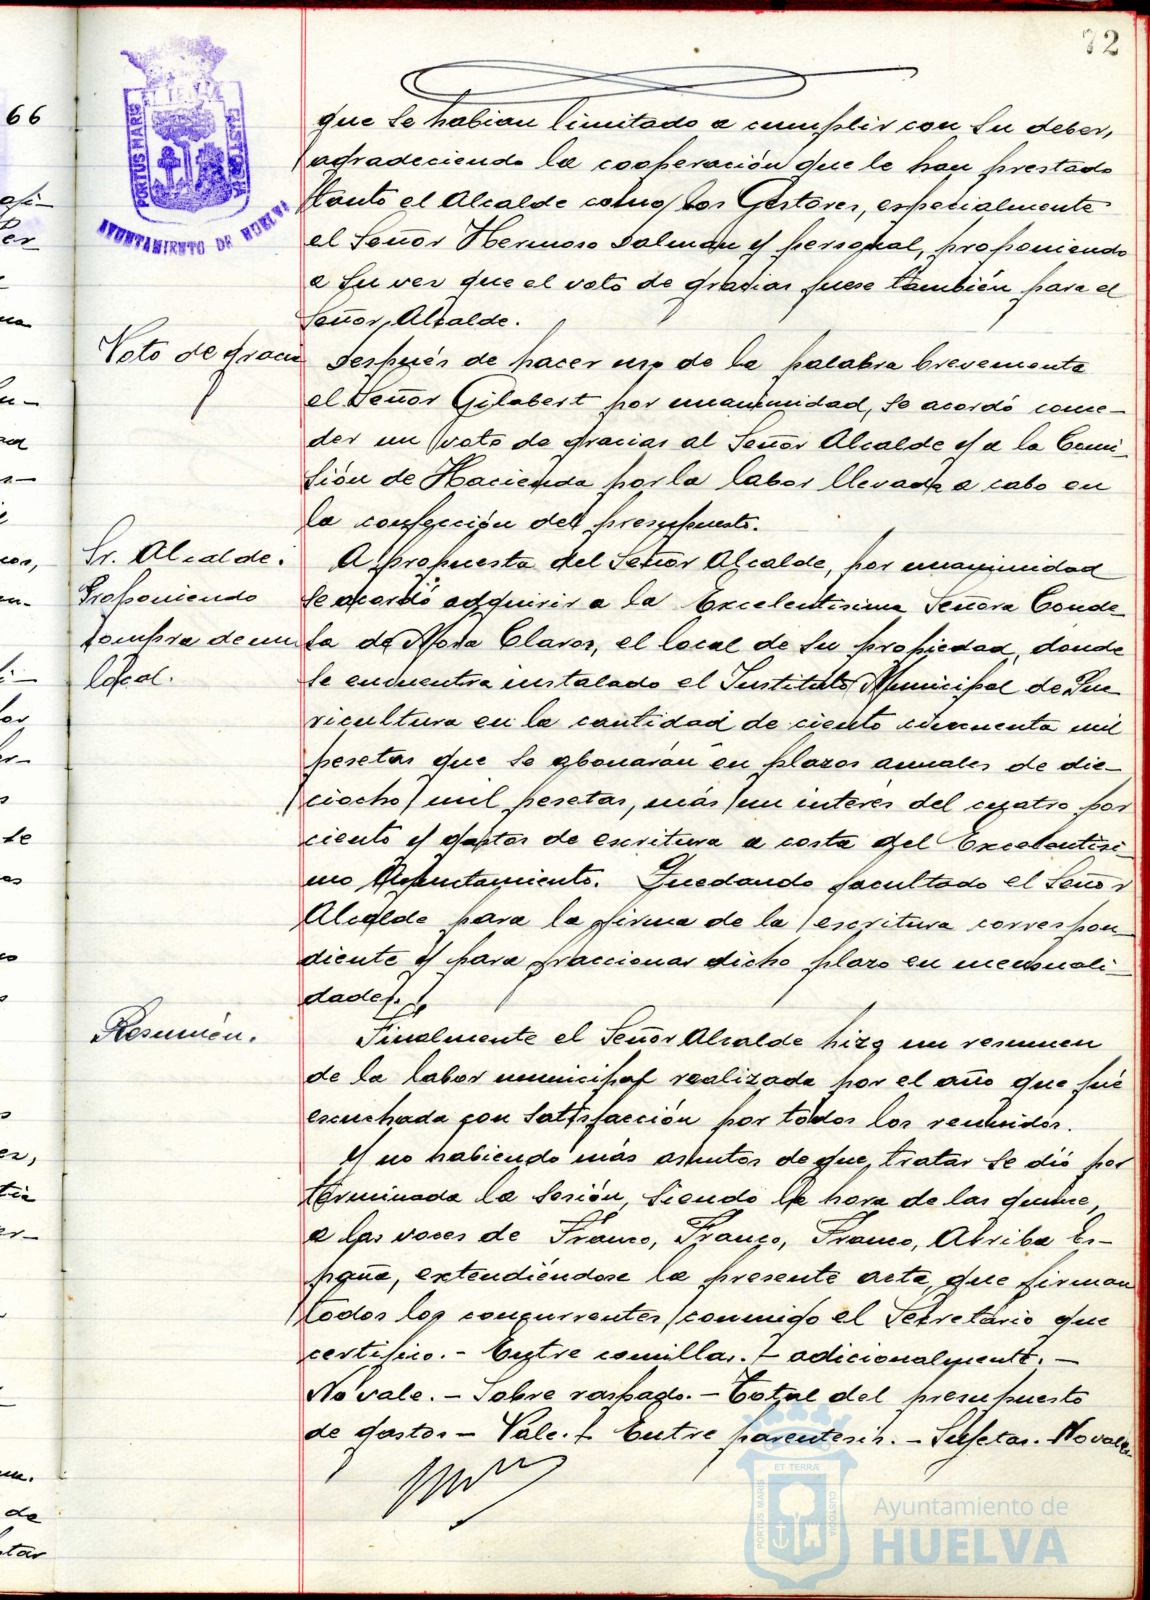 72
66
PORTUS MARIS
ET TERRÆ
CUSTODIA
AYUNTAMIENTO DE HUELVA
que se habian limitado a cumplir con su deber,
agradeciendo la cooperación que le han prestado
tanto el Alcalde como los Gestores, especialmente
el Señor Hermoso Dalman y personal, proponiendo
a su vez que el voto de gracias fuese también para el
Señor Alcalde.
Voto de gracia
Después de hacer uso de la palabra brevemente
el Señor Gilabert por unanimidad, se acordó conce-
der un voto de gracias al Señor Alcalde y a la Comi-
sión de Hacienda por la labor llevada a cabo en
la confección del presupuesto.
Sr. Alcalde:
Proponiendo
compra de un
local.
A propuesta del Señor Alcalde, por unanimidad
se acordó adquirir a la Excelentisima Señora Conde-
sa de Mora Claros, el local de su propiedad, donde
se encuentra instalado el Instituto Municipal de Pue
ricultura en la cantidad de ciento cincuenta mil
pesetas que se abonarán en plazos anuales de die-
ciocho mil pesetas, más un interés del cuatro por
ciento y gastos de escritura a costa del Excelentisi-
mo Ayuntamiento. Quedando facultado el Señor
Alcalde para la firma de la escritura correspon-
diente y para fraccionar dicho plazo en mensuali-
dades.
Resumén.
Finalmente el Señor Alcalde hizo un resumen
de la labor municipal realizada por el año que fué
escuchada con satisfacción por todos los reunidos.
Y no habiendo más asuntos de que tratar se dió por
terminada la sesión, siendo la hora de las quince,
a las voces de Franco, Franco, Franco, Arriba Es-
paña, extendiéndose la presente acta, que firman
todos los concurrentes conmigo el Secretario que
certifico. - Entre comillas. - adicionalmente. -
No vale. - Sobre raspado. - Total del presupuesto
de gastos - Vale. - Entre parentesis. - Sujetas. No vale
ET TERRÆ
PORTUS MARIS
CUSTODIA
Ayuntamiento de
HUELVA